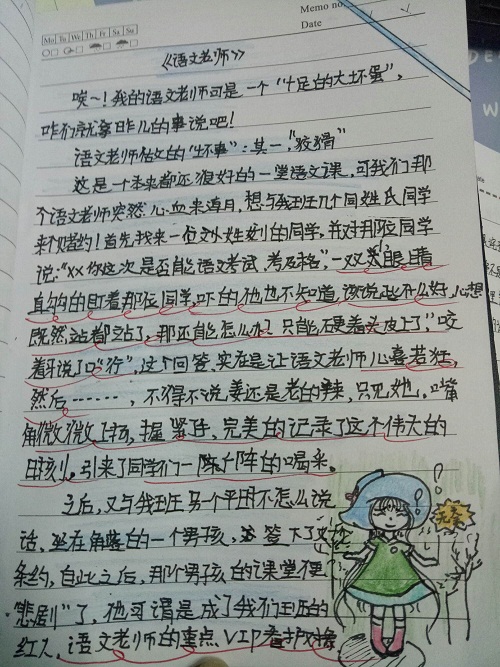 Memo no.
Date
Mo Tu We Th Fr Sa Su
《语文老师》
唉~！我的语文老师可是一个“十足的大坏蛋”，
咱们就拿昨儿的事说吧！
语文老师做的“坏事”：其一，“狡猾”
这是一个本来都还很好的一堂语文课，可我们那
个语文老师突然心血来潮，想与我班几个同姓氏同学
来个赌约！首先找来一位姓刘的同学，并对那位同学
说：“XX你这次是否能语文考试，考及格”，一双大眼睛
直钩的盯着那位同学，吓的他也不知道该说些什么好，心想
既然站都站了，那还能怎么办？只能硬着头皮上了，”咬
着牙说了口“行”，这个回答，实在是让语文老师心喜若狂，
然后……，不得不说姜还是老的辣，只见她，嘴
角微微上扬，握笔手，完美的记录了这个伟大的
时刻，引来了同学们一阵阵的喝采。
之后，又与我班另一个平时不怎么说
话，坐在角落的一个男孩，签下了
条约，自此之后，那个男孩的课堂便
“悲剧”了，他可谓是成了我们班的
红人，语文老师的重点VIP看护对象